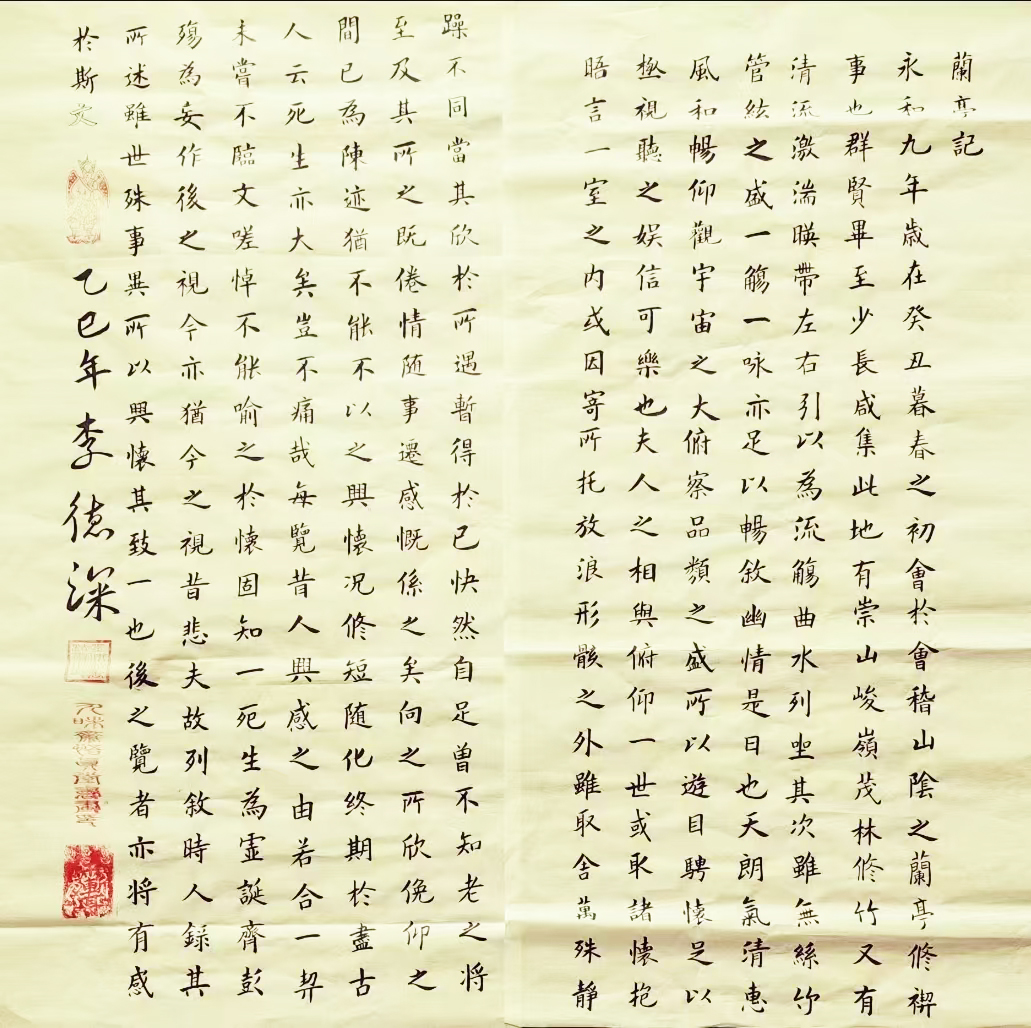 蘭亭記
永和九年歲在癸丑暮春之初會於會稽山陰之蘭亭修禊
事也群賢畢至少長咸集此地有崇山峻嶺茂林修竹又有
清流激湍暎帶左右引以為流觴曲水列坐其次雖無絲竹
管絃之盛一觴一咏亦足以暢敘幽情是日也天朗氣清惠
風和暢仰觀宇宙之大俯察品類之盛所以遊目騁懷足以
極視聽之娛信可樂也夫人之相與俯仰一世或取諸懷抱
晤言一室之內或因寄所托放浪形骸之外雖取舍萬殊靜
躁不同當其欣於所遇暫得於己快然自足曾不知老之將
至及其所之既倦情随事遷感慨係之矣向之所欣俛仰之
間已為陳迹猶不能不以之興懷况修短随化終期於盡古
人云死生亦大矣豈不痛哉每覽昔人興感之由若合一契
未嘗不臨文嗟悼不能喻之於懷固知一死生為虛誕齊彭
殤為妄作後之視今亦猶今之視昔悲夫故列敘時人錄其
所述雖世殊事異所以興懷其致一也後之覽者亦將有感
於斯文
乙巳年李德深